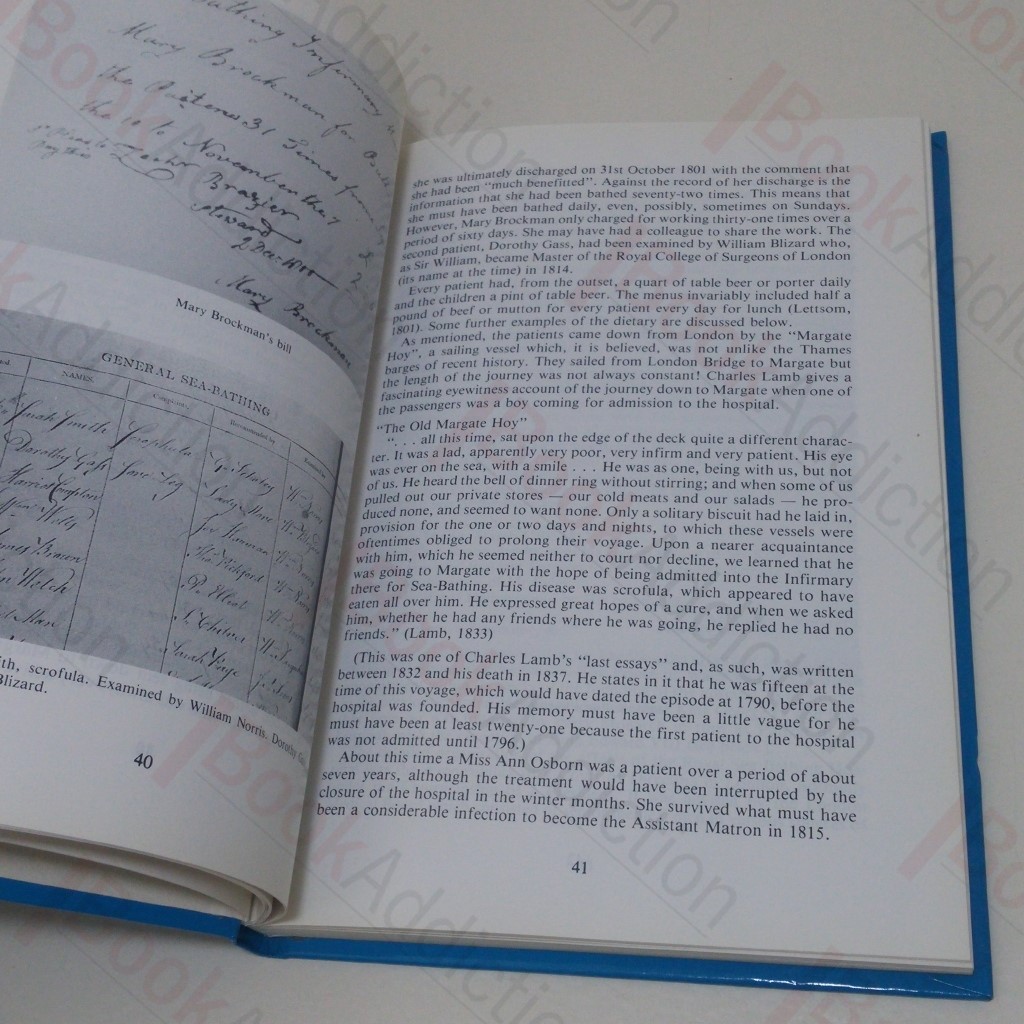 Mary Brockman for
the Patiens 31 Times from
the 10 to November the 7
Brazier
Steward
Mary Brockman
Mary Brockman's bill
GENERAL SEA-BATHING
NAMES.
Sarah Smith Scrophula
Dorothy Gass Sore Leg
ith, scrofula. Examined by William Norris. Dorothy Ga
Blizard.
40
she was ultimately discharged on 31st October 1801 with the comment that
she had been “much benefitted”. Against the record of her discharge is the
information that she had been bathed seventy-two times. This means that
she must have been bathed daily, even, possibly, sometimes on Sundays.
However, Mary Brockman only charged for working thirty-one times over a
period of sixty days. She may have had a colleague to share the work. The
second patient, Dorothy Gass, had been examined by William Blizard who,
as Sir William, became Master of the Royal College of Surgeons of London
(its name at the time) in 1814.
Every patient had, from the outset, a quart of table beer or porter daily
and the children a pint of table beer. The menus invariably included half a
pound of beef or mutton for every patient every day for lunch (Lettsom,
1801). Some further examples of the dietary are discussed below.
As mentioned, the patients came down from London by the “Margate
Hoy”, a sailing vessel which, it is believed, was not unlike the Thames
barges of recent history. They sailed from London Bridge to Margate but
the length of the journey was not always constant! Charles Lamb gives a
fascinating eyewitness account of the journey down to Margate when one of
the passengers was a boy coming for admission to the hospital.
“The Old Margate Hoy”
“. . . all this time, sat upon the edge of the deck quite a different charac-
ter. It was a lad, apparently very poor, very infirm and very patient. His eye
was ever on the sea, with a smile . . . He was as one, being with us, but not
of us. He heard the bell of dinner ring without stirring; and when some of us
pulled out our private stores — our cold meats and our salads — he pro-
duced none, and seemed to want none. Only a solitary biscuit had he laid in,
provision for the one or two days and nights, to which these vessels were
oftentimes obliged to prolong their voyage. Upon a nearer acquaintance
with him, which he seemed neither to court nor decline, we learned that he
was going to Margate with the hope of being admitted into the Infirmary
there for Sea-Bathing. His disease was scrofula, which appeared to have
eaten all over him. He expressed great hopes of a cure, and when we asked
him, whether he had any friends where he was going, he replied he had no
friends.” (Lamb, 1833)
(This was one of Charles Lamb's “last essays” and, as such, was written
between 1832 and his death in 1837. He states in it that he was fifteen at the
time of this voyage, which would have dated the episode at 1790, before the
hospital was founded. His memory must have been a little vague for he
must have been at least twenty-one because the first patient to the hospital
was not admitted until 1796.)
About this time a Miss Ann Osborn was a patient over a period of about
seven years, although the treatment would have been interrupted by the
closure of the hospital in the winter months. She survived what must have
been a considerable infection to become the Assistant Matron in 1815.
41
BookAddiction